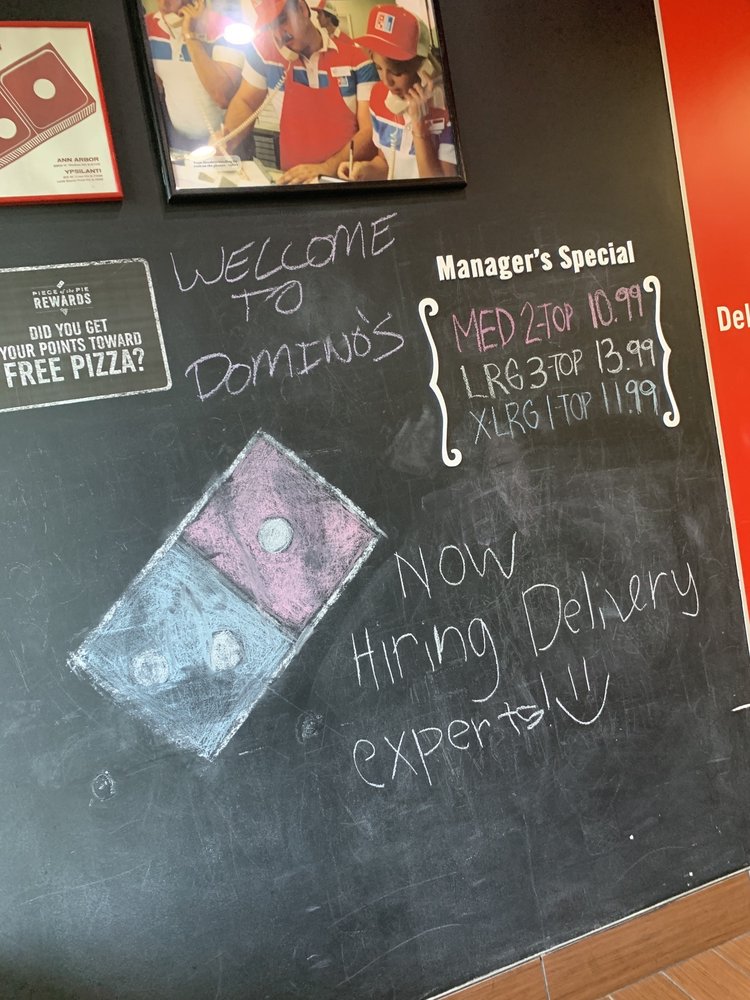 ANN ARBOR
YPSILANTI
WELCOME
TO
DOMINO'S
PIECE of the PIE
REWARDS
DID YOU GET
YOUR POINTS TOWARD
FREE PIZZA?
Manager's Special
MED 2-TOP 10.99
LRG 3-TOP 13.99
X-LRG 1-TOP 11.99
Del
NOW
Hiring Delivery
experts!